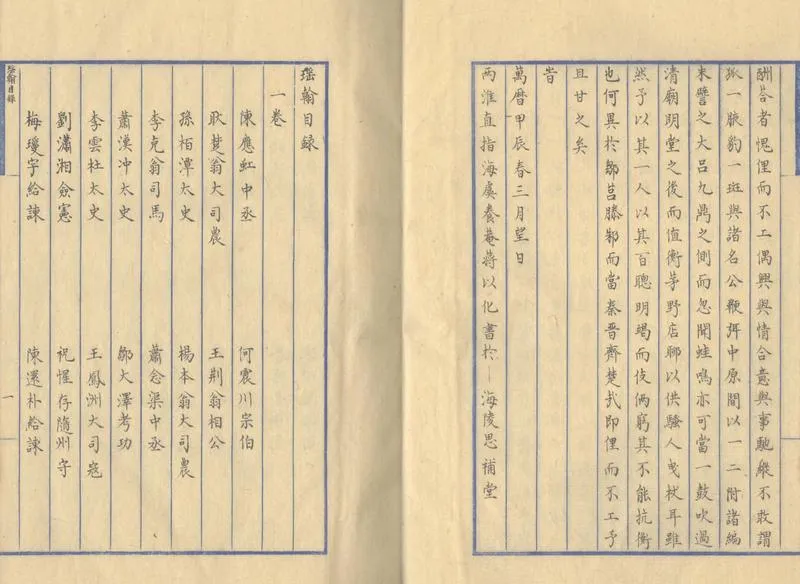 酬荅者愧俚而不工偶興與情合意與事馳縱不敢謂
狐一腋豹一斑與諸名公鞭弭中原間以一二附諸編
末譬之大吕九鼎之側而忽聞蛙鳴亦可當一鼓吹過
清廟明堂之後而值衡茅野店聊以供騷人曳杖耳雖
然予以其一人以其百聰明竭而伎俩窮其不能抗衡
也何異於鄒莒滕邾而當秦晉齊楚㢤即俚而不工予
且甘之矣
旹
萬曆甲辰春三月望日
兩淮直指海虞養菴蔣以化書於 海陵思補堂
瑶翰目録
一卷
陳應虹中丞 何震川宗伯
耿楚翁大司農 王荆翁相公
孫栢潭太史 楊本翁大司農
李克翁司馬 蕭念渠中丞
蕭漢冲太史 鄒大澤考功
李雲杜太史 王鳳洲大司寇
劉瀟湘僉憲 祝惺存隨州守
梅瓊宇給諫 陳還朴給諫
瑶翰目録
一